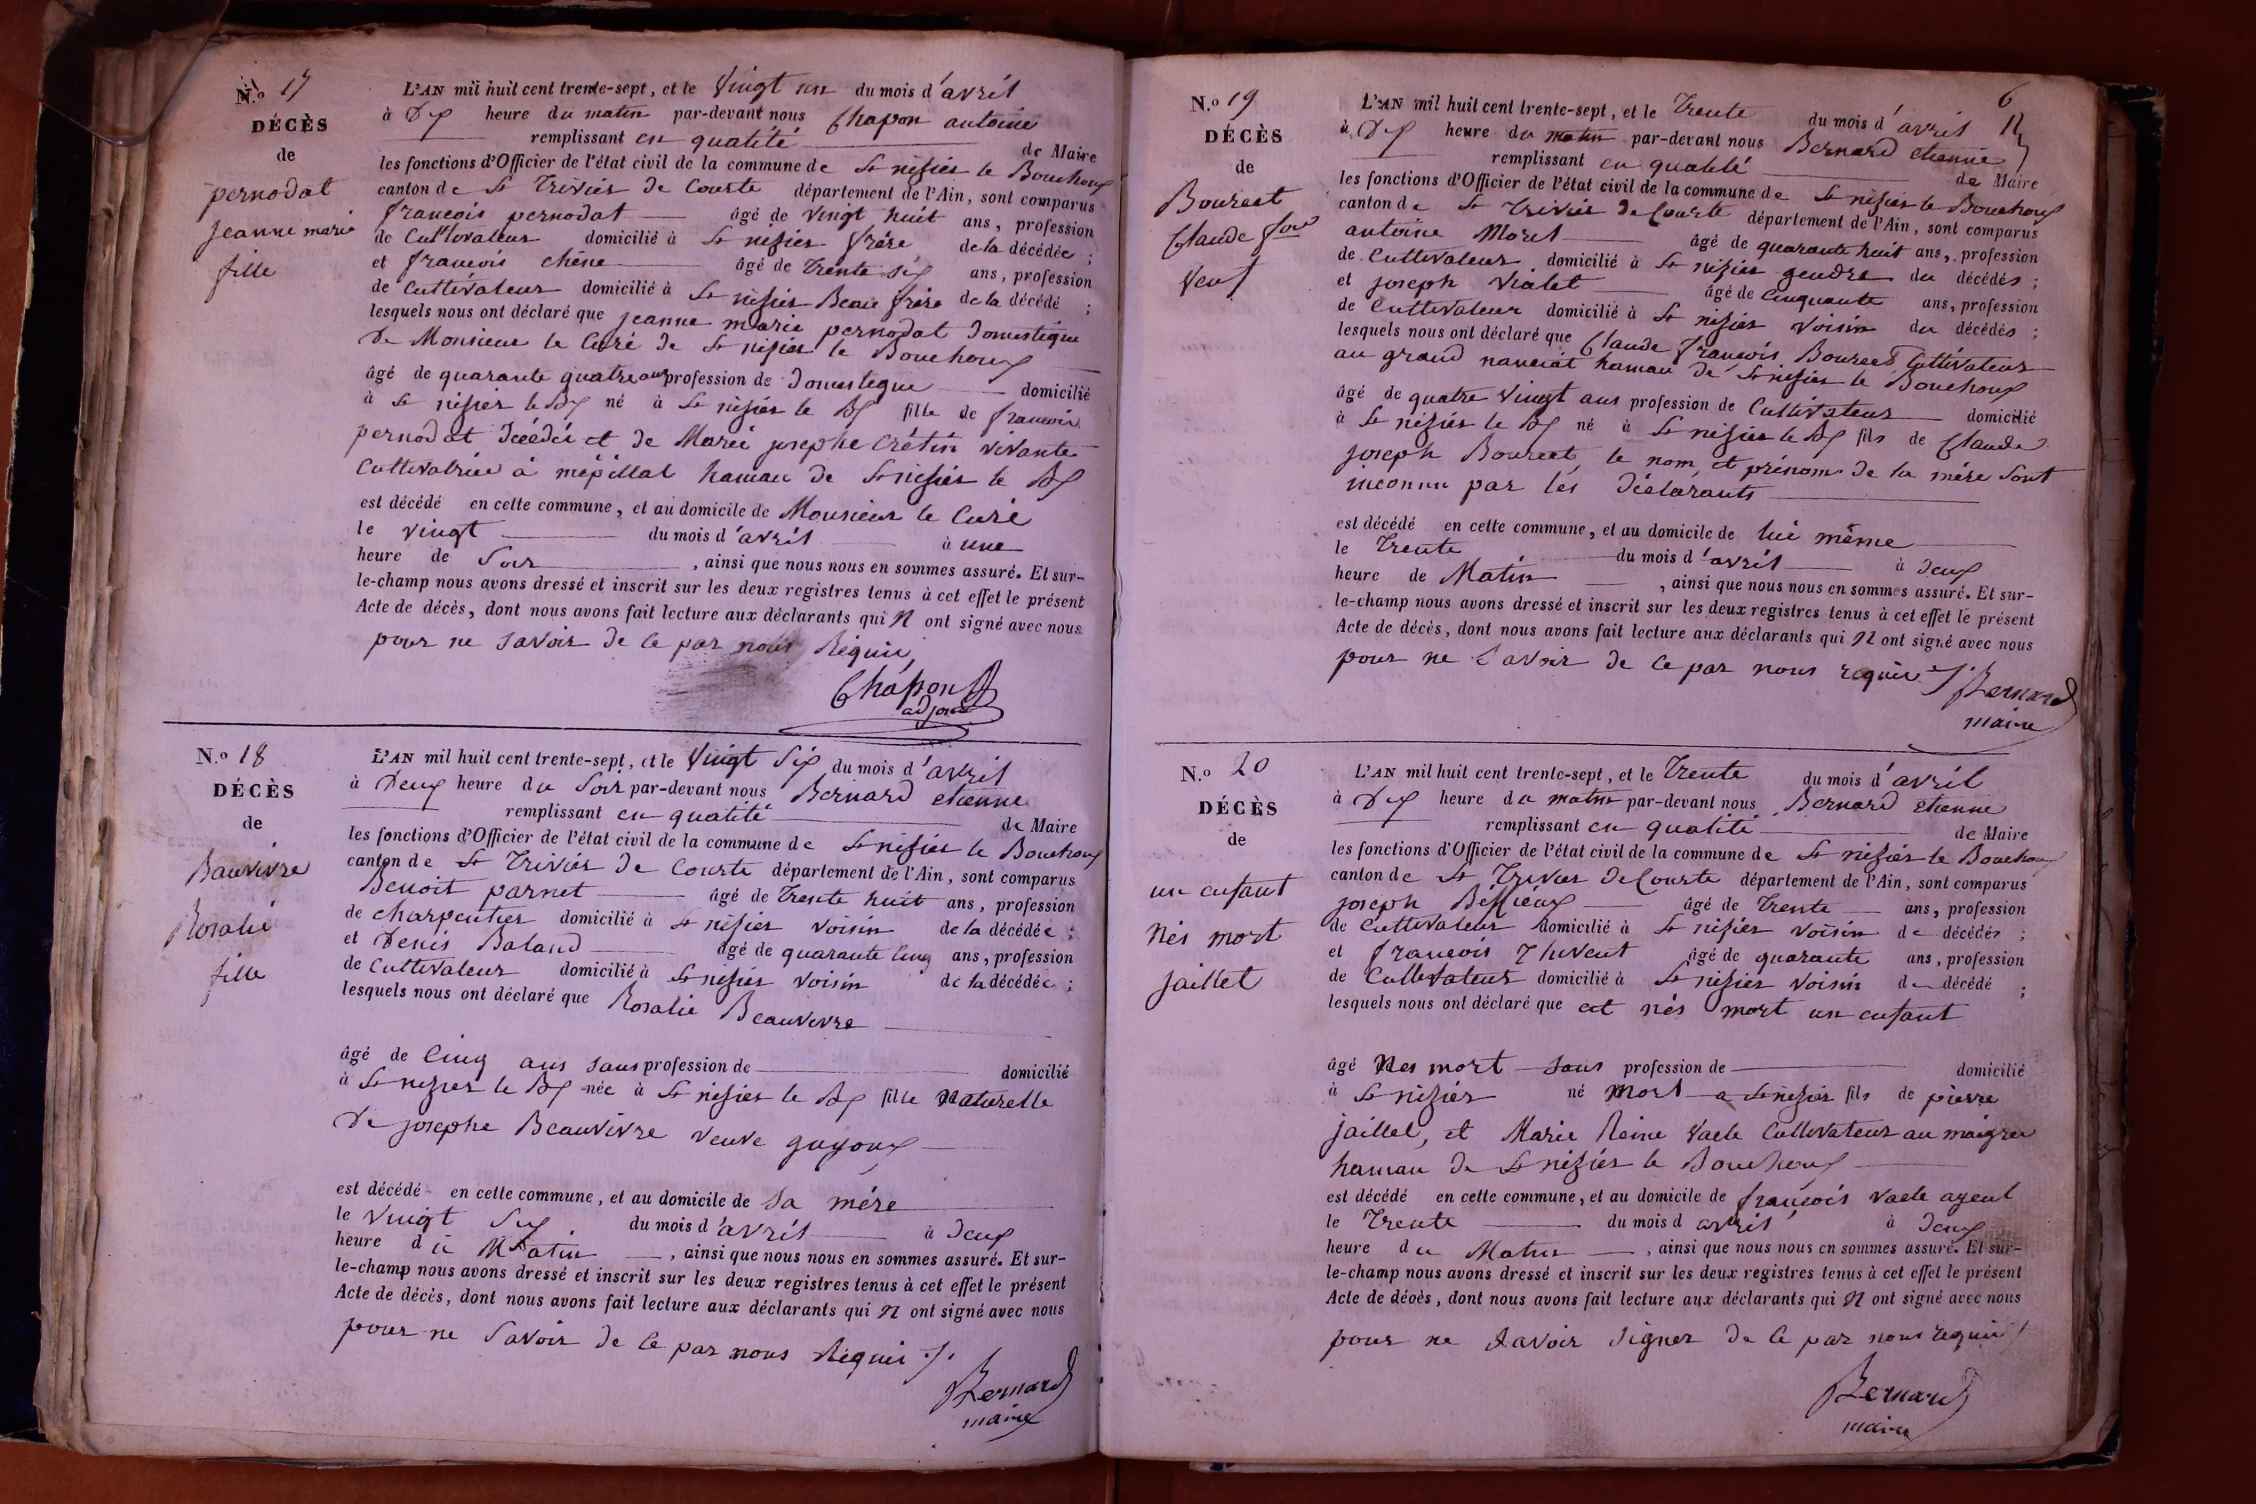 N.o 17
DÉCÈS
de
pernodat
jeanne marie
fille
L'AN mil huit cent trente-sept, et le Vingt un du mois d'avril
à Dix heure du matin par-devant nous Chapon antoine
remplissant en qualité de Maire
les fonctions d'Officier de l'état civil de la commune de St nisier le Bouchoux
canton de St Trivier de Courte département de l'Ain, sont comparus
francois pernodat âgé de vingt huit ans, profession
de Cultivateur domicilié à St nisier frére de la décédée ;
et francois chêne âgé de trente six ans, profession
de Cultivateur domicilié à St nisier Beau frére de la décédé ;
lesquels nous ont déclaré que jeanne marie pernodat Domestique
De Monsieur le Curé de St nisier le Bouchoux
âgé de quarante quatre ans profession de Domestique domicilié
à St nisier le Bx né à St nisier le Bx fille de francois
pernodat décédé et de Marie josephe Crétin vivante
Cultivatrice à mépillat hamau de St nisier le Bx
est décédé en cette commune, et au domicile de Monsieur le Curé
le vingt du mois d'avril à une
heure de Soir , ainsi que nous nous en sommes assuré. Et sur-
le-champ nous avons dressé et inscrit sur les deux registres tenus à cet effet le présent
Acte de décès, dont nous avons fait lecture aux déclarants qui N ont signé avec nous
pour ne savoir de ce par nous Réquis
Chapon
adjoint
N.o 18
DÉCÈS
de
Bauvivre
Rosalie
fille
L'AN mil huit cent trente-sept, et le Vingt Six du mois d'avril
à Deux heure du Soir par-devant nous Bernard etienne
remplissant en qualité de Maire
les fonctions d'Officier de l'état civil de la commune de St nisier le Bouchoux
canton de St Trivier de Courte département de l'Ain, sont comparus
Benoit parnet âgé de Trente huit ans, profession
de charpentier domicilié à St nisier voisin de la décédée ;
et Denis Baland âgé de quarante Cinq ans, profession
de Cultivateur domicilié à St nisier voisin de la décédée ;
lesquels nous ont déclaré que Rosalie Beauvivre
âgé de Cinq ans sans profession de domicilié
à St nizier le Bx née à St nisier le Bx fille Naturelle
De josephe Beauvivre veuve guyoux
est décédé en cette commune, et au domicile de sa mére
le vingt Six du mois d'avril à Deux
heure du Matin , ainsi que nous nous en sommes assuré. Et sur-
le-champ nous avons dressé et inscrit sur les deux registres tenus à cet effet le présent
Acte de décès, dont nous avons fait lecture aux déclarants qui N ont signé avec nous
pour ne Savoir de ce par nous Réquis
Bernard
maire
6
N.o 19
DÉCÈS
de
Boureet
Claude fois
veuf
L'AN mil huit cent trente-sept, et le Trente du mois d'avril
à Dix heure du matin par-devant nous Bernard etienne
remplissant en qualité de Maire
les fonctions d'Officier de l'état civil de la commune de St nisier le Bouchoux
canton de St Trivier de Courte département de l'Ain, sont comparus
antoine Morel âgé de quarante huit ans, profession
de Cultivateur domicilié à St nizier gendre du décédés ;
et joseph Vialet âgé de Cinquante ans, profession
de Cultivateur domicilié à St nisier Voisin du décédés ;
lesquels nous ont déclaré que Claude francois Boureet Cultivateur
au grand hamau de St nisier le Bouchoux
âgé de quatre Vingt ans profession de Cultivateur domicilié
à St nisier le Bx né à St nisier le Bx fils de Claude
joseph Boureet le nom et prénom de la mére sont
inconnu par les Déclarants
est décédé en cette commune, et au domicile de lui même
le Trente du mois d'avril à Deux
heure de Matin , ainsi que nous nous en sommes assuré. Et sur-
le-champ nous avons dressé et inscrit sur les deux registres tenus à cet effet le présent
Acte de décès, dont nous avons fait lecture aux déclarants qui N ont signé avec nous
pour ne Savoir de ce par nous requis
Bernard
maire
N.o 20
DÉCÈS
de
un enfant
Nés mort
jaillet
L'AN mil huit cent trente-sept, et le Trente du mois d'avril
à Dix heure du matin par-devant nous Bernard etienne
remplissant en qualité de Maire
les fonctions d'Officier de l'état civil de la commune de St nizier le Bouchoux
canton de St Trivier de Courte département de l'Ain, sont comparus
joseph âgé de Trente ans, profession
de Cultivateur domicilié à St nisier voisin de décédés ;
et francois Thevent âgé de quarante ans, profession
de Cultivateur domicilié à St nisier voisin de décédé ;
lesquels nous ont déclaré que est nés mort un enfant
âgé Nes mort sans profession de domicilié
à St nizier né mort a St nizier fils de pierre
jaillet, et Marie Reine Vaele Cultivateur au maigre
hamau de St nizier le Bouchoux
est décédé en cette commune, et au domicile de francois vaele ayeul
le Trente du mois d avril à Deux
heure du Matin , ainsi que nous nous en sommes assuré. Et sur-
le-champ nous avons dressé et inscrit sur les deux registres tenus à cet effet le présent
Acte de décès, dont nous avons fait lecture aux déclarants qui N ont signé avec nous
pour ne savoir signer de ce par nous requis
Bernard
maire